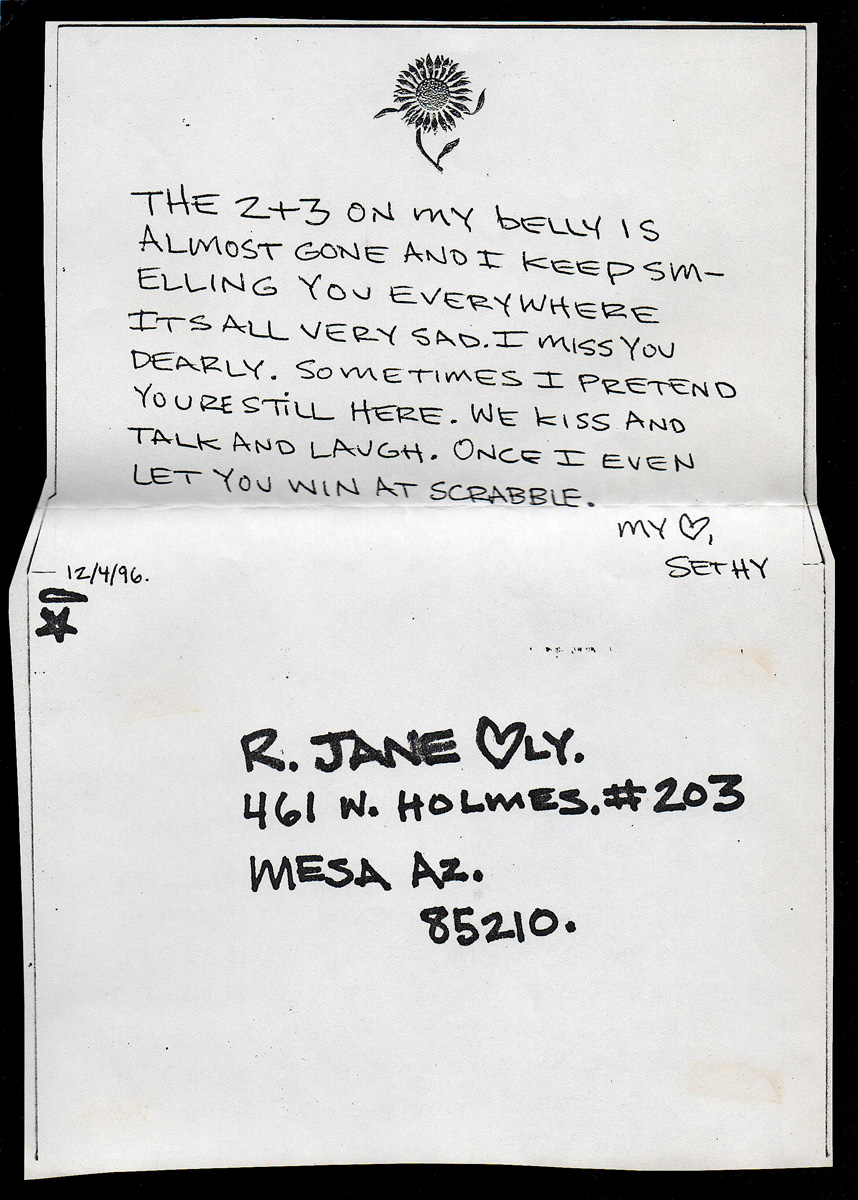 THE 2+3 ON MY bELLY IS
ALMOST GONE AND I KEEP SM-
ELLING YOU EVERYWHERE
ITS ALL VERY SAD. I MISS YOU
DEARLY. SOMETIMES I PRETEND
YOURE STiLL HERE. WE KISS AND
TALK AND LAUGH. ONCE I EVEN
LET YOU WIN AT SCRABBLE.
MY ♡,
SETHY
12/4/96.
R. JANE ♡LY.
461 W. HOLMES. #203
MESA AZ.
85210.